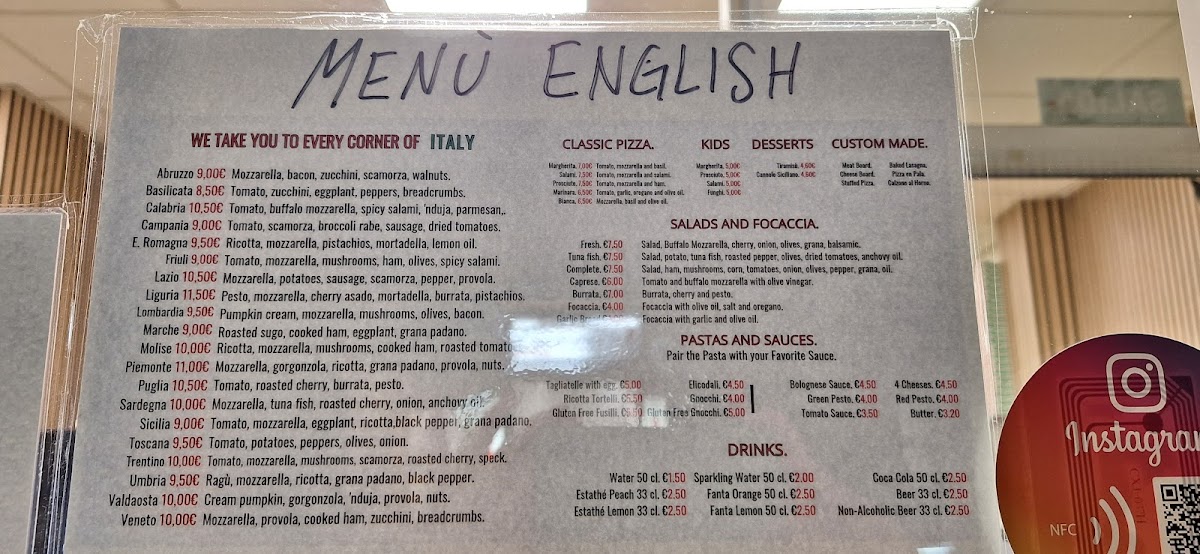 MENÙ ENGLISH
WE TAKE YOU TO EVERY CORNER OF ITALY
Abruzzo 9,00€ Mozzarella, bacon, zucchini, scamorza, walnuts.
Basilicata 8,50€ Tomato, zucchini, eggplant, peppers, breadcrumbs.
Calabria 10,50€ Tomato, buffalo mozzarella, spicy salami, 'nduja, parmesan,.
Campania 9,00€ Tomato, scamorza, broccoli rabe, sausage, dried tomatoes.
E. Romagna 9,50€ Ricotta, mozzarella, pistachios, mortadella, lemon oil.
Friuli 9,00€ Tomato, mozzarella, mushrooms, ham, olives, spicy salami.
Lazio 10,50€ Mozzarella, potatoes, sausage, scamorza, pepper, provola.
Liguria 11,50€ Pesto, mozzarella, cherry asado, mortadella, burrata, pistachios.
Lombardia 9,50€ Pumpkin cream, mozzarella, mushrooms, olives, bacon.
Marche 9,00€ Roasted sugo, cooked ham, eggplant, grana padano.
Molise 10,00€ Ricotta, mozzarella, mushrooms, cooked ham, roasted tomato
Piemonte 11,00€ Mozzarella, gorgonzola, ricotta, grana padano, provola, nuts.
Puglia 10,50€ Tomato, roasted cherry, burrata, pesto.
Sardegna 10,00€ Mozzarella, tuna fish, roasted cherry, onion, anchovy oil.
Sicilia 9,00€ Tomato, mozzarella, eggplant, ricotta,black pepper, grana padano.
Toscana 9,50€ Tomato, potatoes, peppers, olives, onion.
Trentino 10,00€ Tomato, mozzarella, mushrooms, scamorza, roasted cherry, speck.
Umbria 9,50€ Ragù, mozzarella, ricotta, grana padano, black pepper.
Valdaosta 10,00€ Cream pumpkin, gorgonzola, 'nduja, provola, nuts.
Veneto 10,00€ Mozzarella, provola, cooked ham, zucchini, breadcrumbs.
CLASSIC PIZZA.
Margherita. 7,00€ Tomato, mozzarella and basil.
Salami. 7,50€ Tomato, mozzarella and salami.
Prosciuto. 7,50€ Tomato, mozzarella and ham.
Marinara. 6,50€ Tomato, garlic, oregano and olive oil.
Bianca. 6,50€ Mozzarella, basil and olive oil.
KIDS
Margherita. 5,00€
Prosciuto. 5,00€
Salami. 5,00€
Funghi. 5,00€
DESSERTS
Tiramisù. 4,60€
Cannolo Siciliano. 4,60€
CUSTOM MADE.
Meat Board. Baked Lasagna.
Cheese Board. Pizza en Pala.
Stuffed Pizza. Calzone al Horno.
SALADS AND FOCACCIA.
Fresh. €7,50 Salad, Buffalo Mozzarella, cherry, onion, olives, grana, balsamic.
Tuna fish. €7,50 Salad, potato, tuna fish, roasted pepper, olives, dried tomatoes, anchovy oil.
Complete. €7,50 Salad, ham, mushrooms, corn, tomatoes, onion, olives, pepper, grana, oil.
Caprese. €6,00 Tomato and buffalo mozzarella with olive vinegar.
Burrata. €7,00 Burrata, cherry and pesto.
Focaccia. €4,00 Focaccia with olive oil, salt and oregano.
Garlic Bread Focaccia with garlic and olive oil.
PASTAS AND SAUCES.
Pair the Pasta with your Favorite Sauce.
Tagliatelle with egg. €5,00 Elicodali. €4,50 Bolognese Sauce. €4,50 4 Cheeses. €4,50
Ricotta Tortelli. €5,50 Gnocchi. €4,00 Green Pesto. €4,00 Red Pesto. €4,00
Gluten Free Fusilli. Gluten Free Gnocchi. €5,00 Tomato Sauce. €3,50 Butter. €3,20
DRINKS.
Water 50 cl. €1.50 Sparkling Water 50 cl. €2.00 Coca Cola 50 cl. €2.50
Estathé Peach 33 cl. €2.50 Fanta Orange 50 cl. €2.50 Beer 33 cl. €2.50
Estathé Lemon 33 cl. €2.50 Fanta Lemon 50 cl. €2.50 Non-Alcoholic Beer 33 cl. €2.50
Instagra
NFC